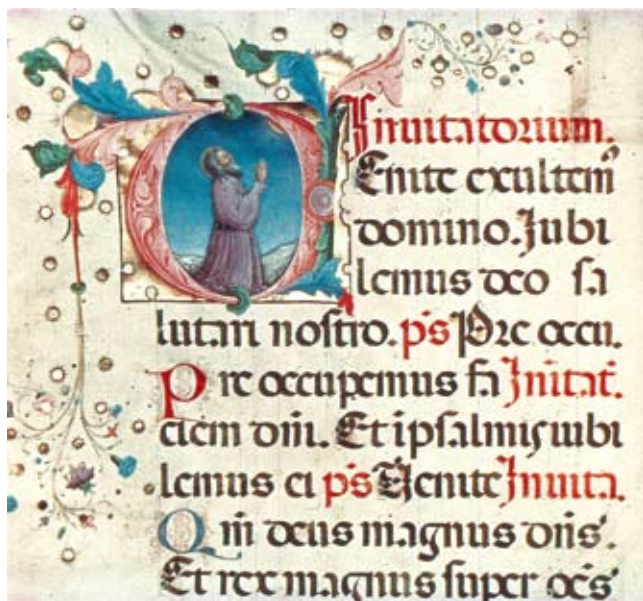 Inuitatorium.
VEnite exultem̃
domino. Jubi
lemus deo ſa
lutari noſtro. p̃s Pre occu.
Pre occupemus fa Inuitat̃.
ciem dñi. Et i pſalmis iubi
lemus ei p̃s Uenite Inuita.
Qm̃ deus magnus dñs.
Et rex magnus ſuper oẽs